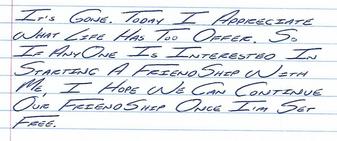 It's Gone. Today I Appreciate
What Life Has Too Offer. So
If AnyOne Is Interested In
Starting A FriendShip With
Me, I Hope We Can Continue
Our FriendShip Once I'm Set
Free.